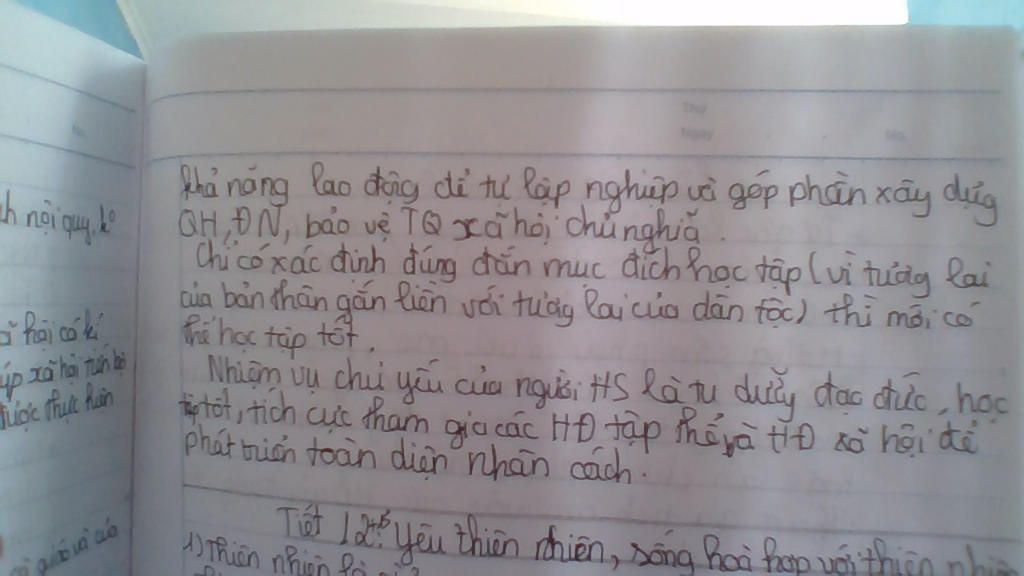 Thứ
Ngày No.
khả năng lao động để tự lập nghiệp và góp phần xây dựng
QH, ĐN, bảo vệ TQ xã hội chủ nghĩa.
Chỉ có xác định đúng đắn mục đích học tập (vì tương lai
của bản thân gắn liền với tương lai của dân tộc) thì mới có
thể học tập tốt.
Nhiệm vụ chủ yếu của người HS là tu dưỡng đạo đức, học
tập tốt, tích cực tham gia các HĐ tập thể và HĐ xã hội để
phát triển toàn diện nhân cách.
Tiết 12: Yêu thiên nhiên, sống hoà hợp với thiên nhiên
1) Thiên nhiên là gì?
No.
nội quy,
xã hội
được thực hiện